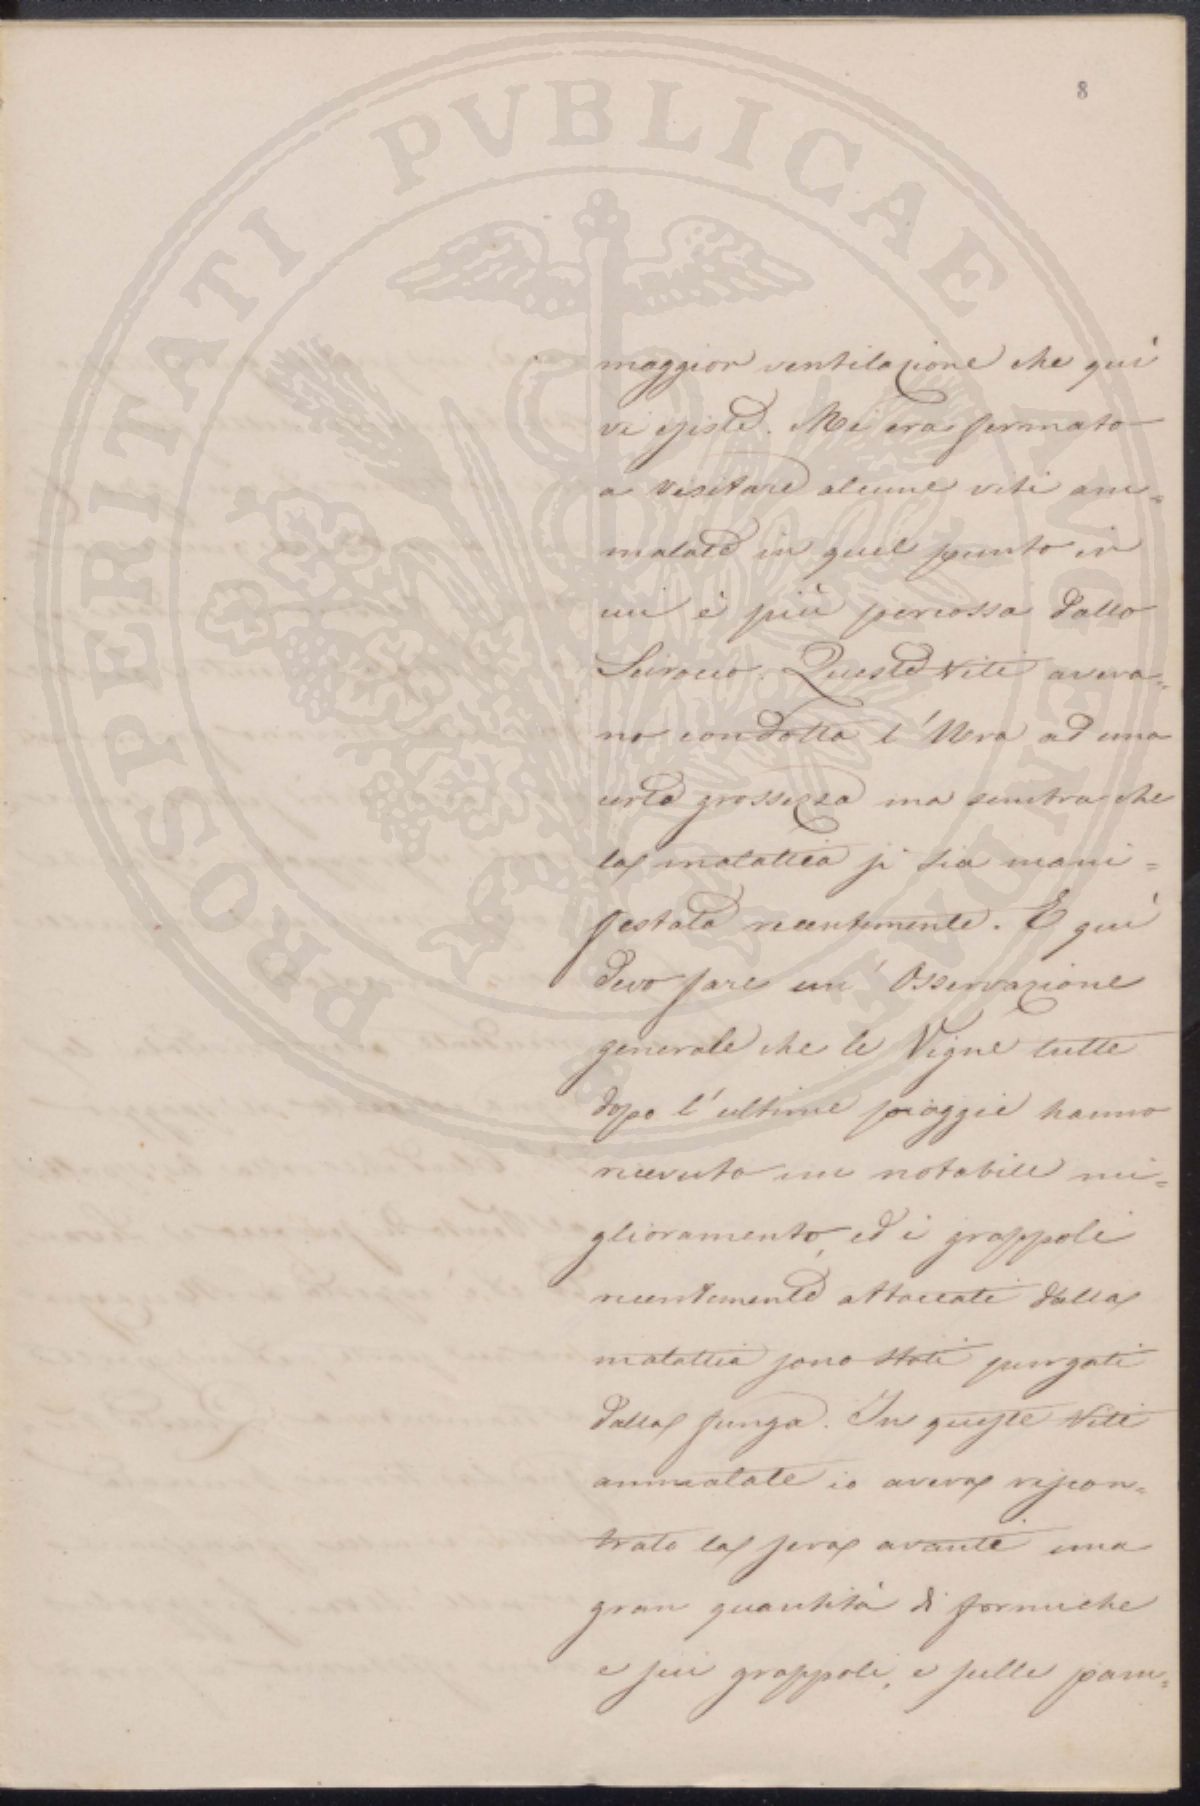 8
PROSPERITATI PVBLICAE AVGENDAE
maggior ventilazione che quì
vi esiste. Mi era fermato
a visitare alcune viti am=
malate in quel punto in
cui è più percossa dallo
Scirocco. Queste Viti aveva=
no condotta l'Uva ad una
certa grossezza ma sembra che
la malattia si sia mani=
festata recentemente. E quì
devo fare un' Osservazione
generale che le Vigne tutte
dopo l'ultime pioggie hanno
ricevuto un notabile mi=
glioramento, ed i grappoli
recentemente attaccati dalla
malattia sono stati purgati
dalla funga. In queste Viti
ammalate io aveva riscon=
trato la sera avanti una
gran quantità di formiche
e sui grappoli, e sulle pam=